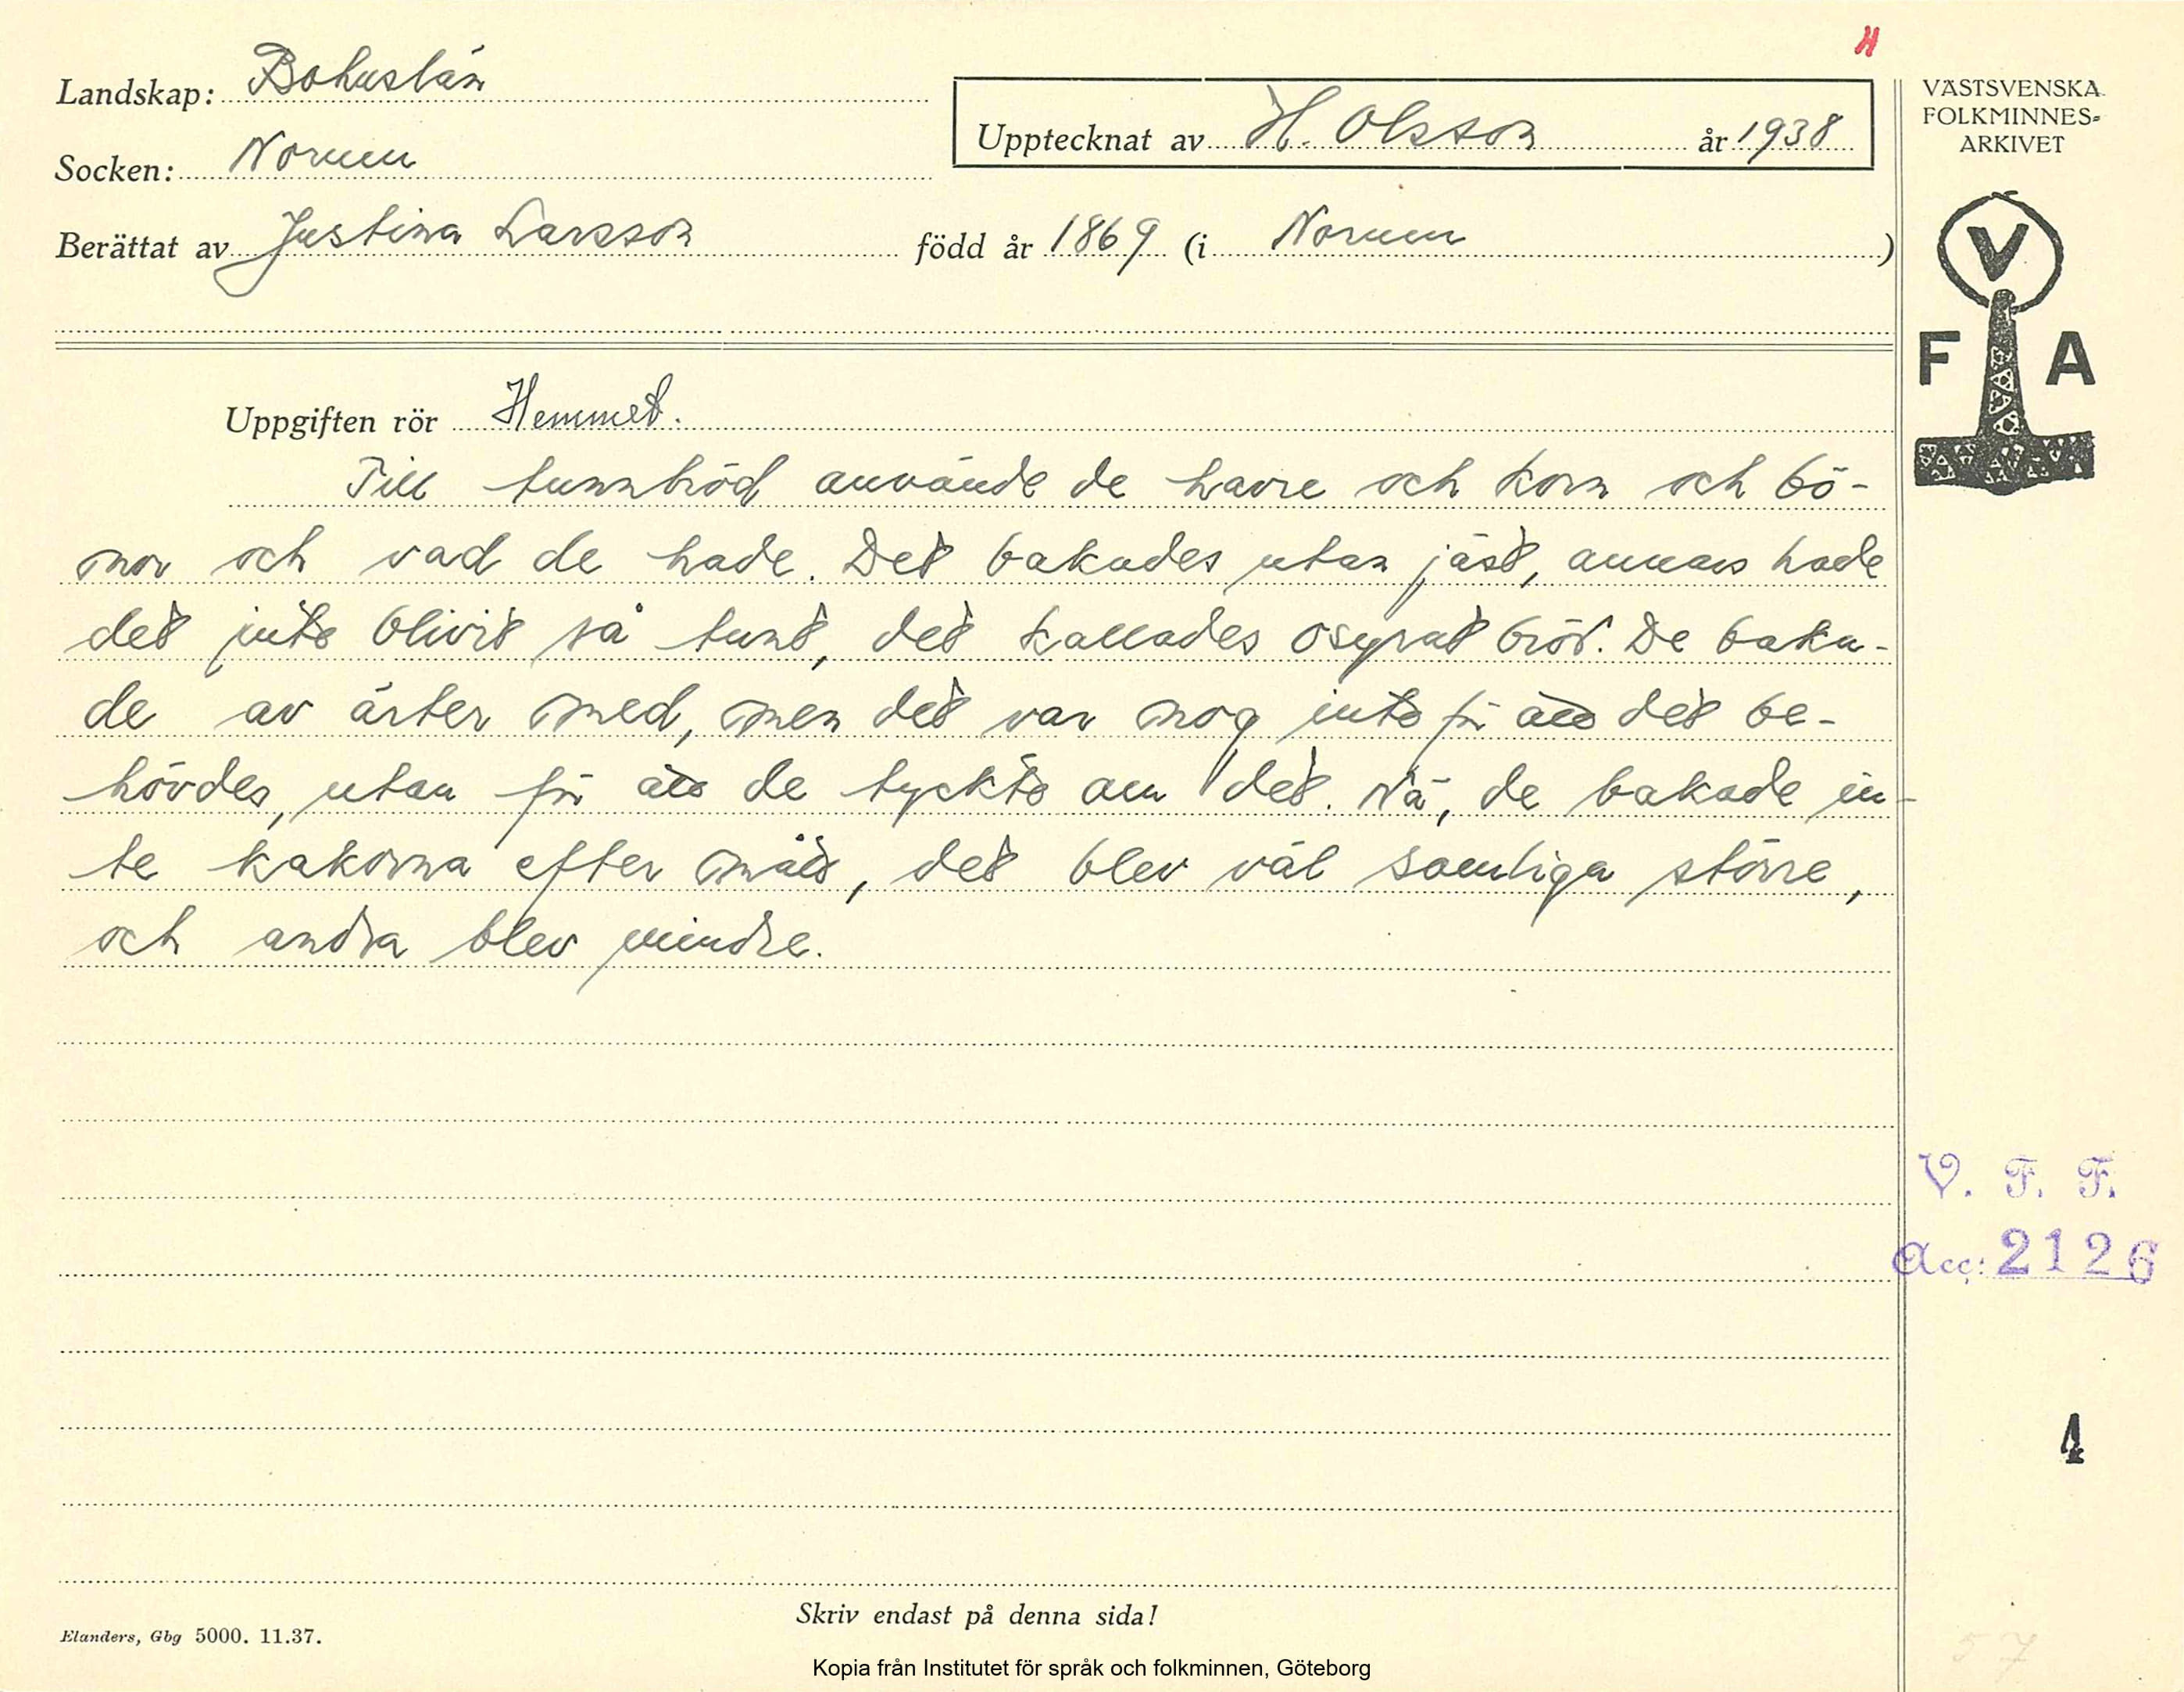 H
Landskap: Bohuslän
Socken: Norum
Upptecknat av H. Olsson år 1938
Berättat av Justina Larsson född år 1869 (i Norum)
VÄSTSVENSKA
FOLKMINNES-
ARKIVET
V
F A
Uppgiften rör Hemmet.
Till tunnbröd använde de havre och korn och bö-
nor och vad de hade. Det bakades utan jäst, annars hade
det inte blivit så tunt, det kallades osyrat bröd. De baka-
de av ärter med, men det var nog inte för att det be-
hövdes, utan för att de tyckte om det. Nä, de bakade in-
te kakorna efter mått, det blev väl somliga större,
och andra blev mindre.
V. F. F.
Acc: 2126
4
Skriv endast på denna sida!
Elanders, Gbg 5000. 11.37.
57
Kopia från Institutet för språk och folkminnen, Göteborg